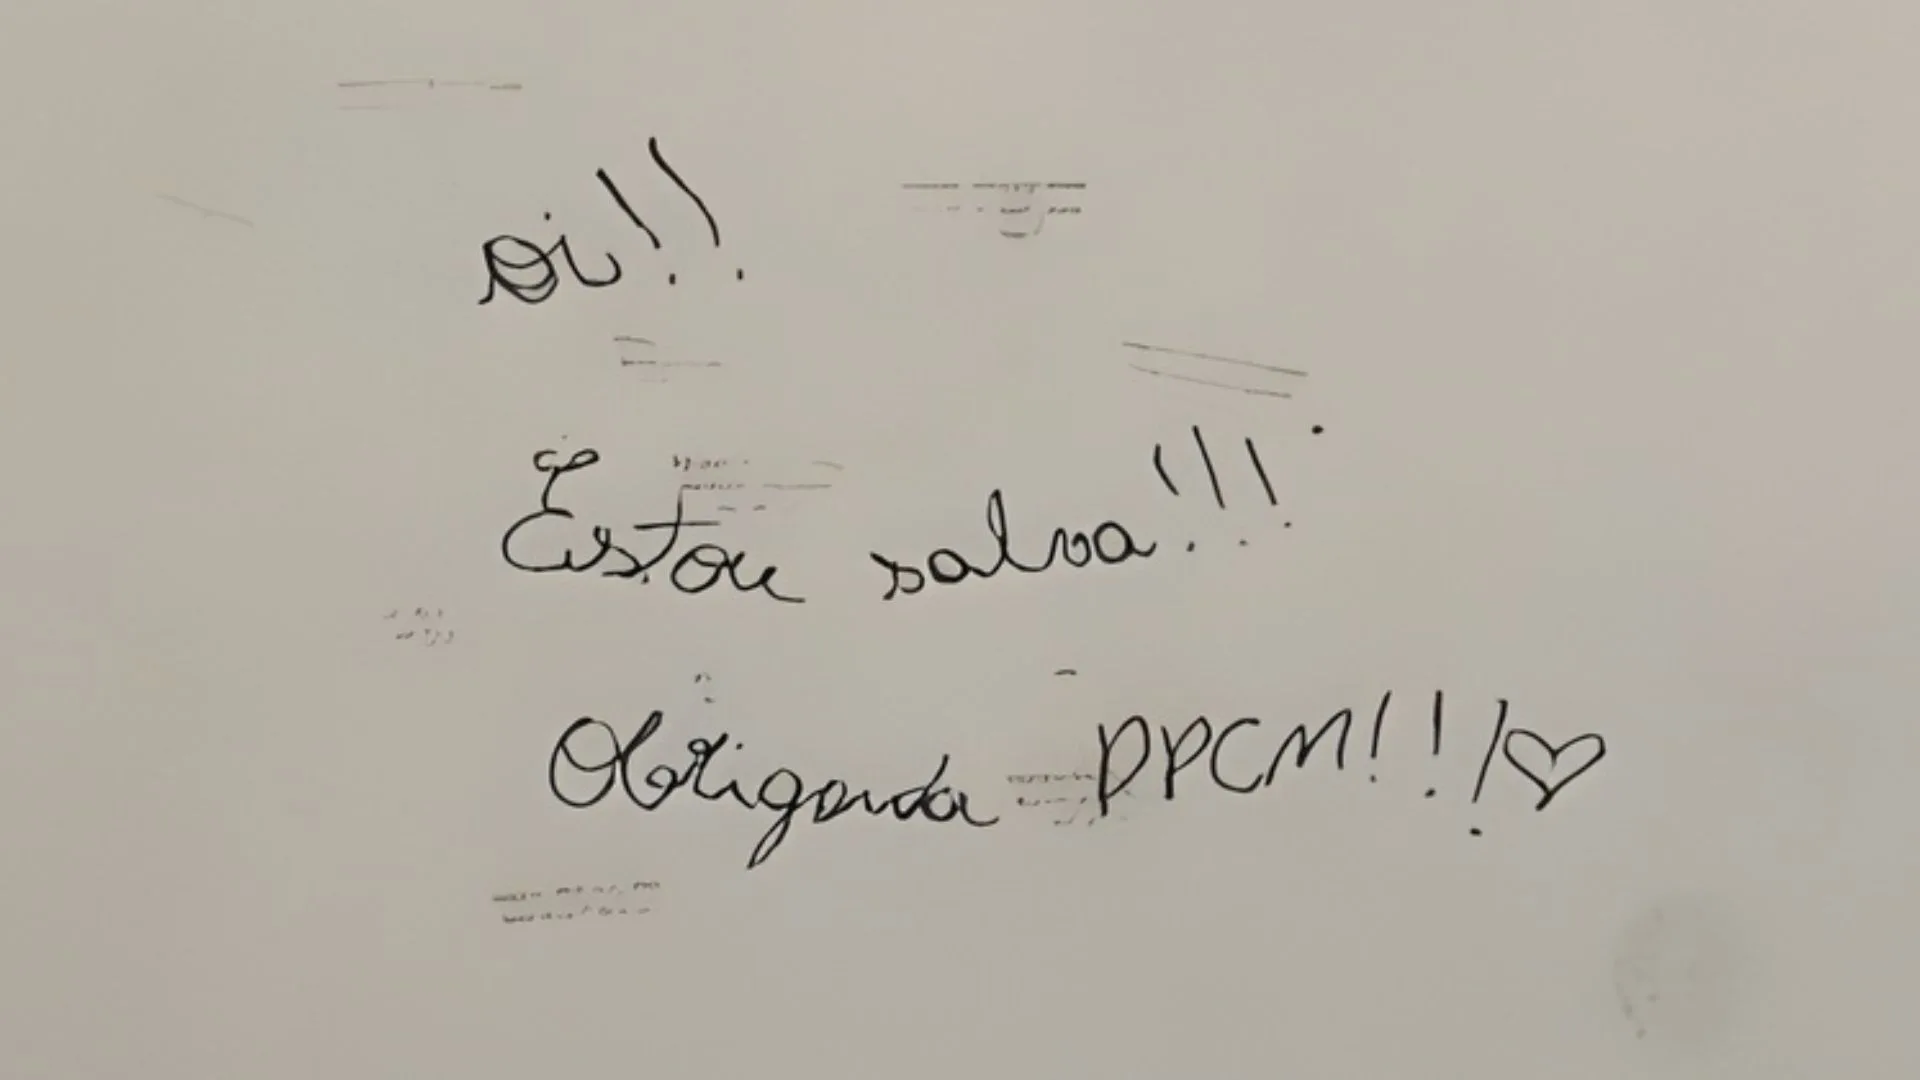 oi!!
Estou salva!!!
Obrigada PPCM!!!